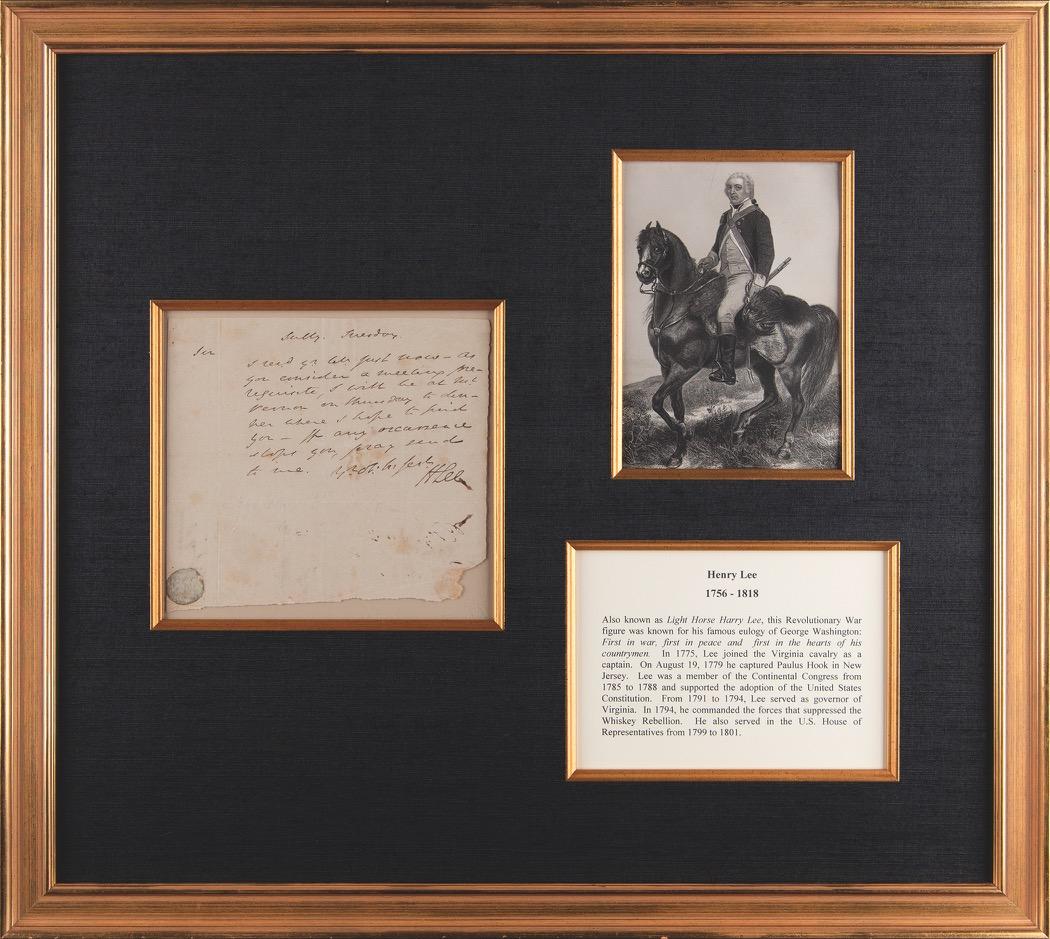 Sully. Tuesday.
Sir
I recd yr let. just now – as
you consider a meeting pre-
requisite, I will be at Mt
Vernon on Thursday to din-
ner where I hope to find
you – If any occurrence
stops you, pray send
to me.
H Lee
Henry Lee
1756 - 1818
Also known as Light Horse Harry Lee, this Revolutionary War
figure was known for his famous eulogy of George Washington:
First in war, first in peace and first in the hearts of his
countrymen. In 1775, Lee joined the Virginia cavalry as a
captain. On August 19, 1779 he captured Paulus Hook in New
Jersey. Lee was a member of the Continental Congress from
1785 to 1788 and supported the adoption of the United States
Constitution. From 1791 to 1794, Lee served as governor of
Virginia. In 1794, he commanded the forces that suppressed the
Whiskey Rebellion. He also served in the U.S. House of
Representatives from 1799 to 1801.